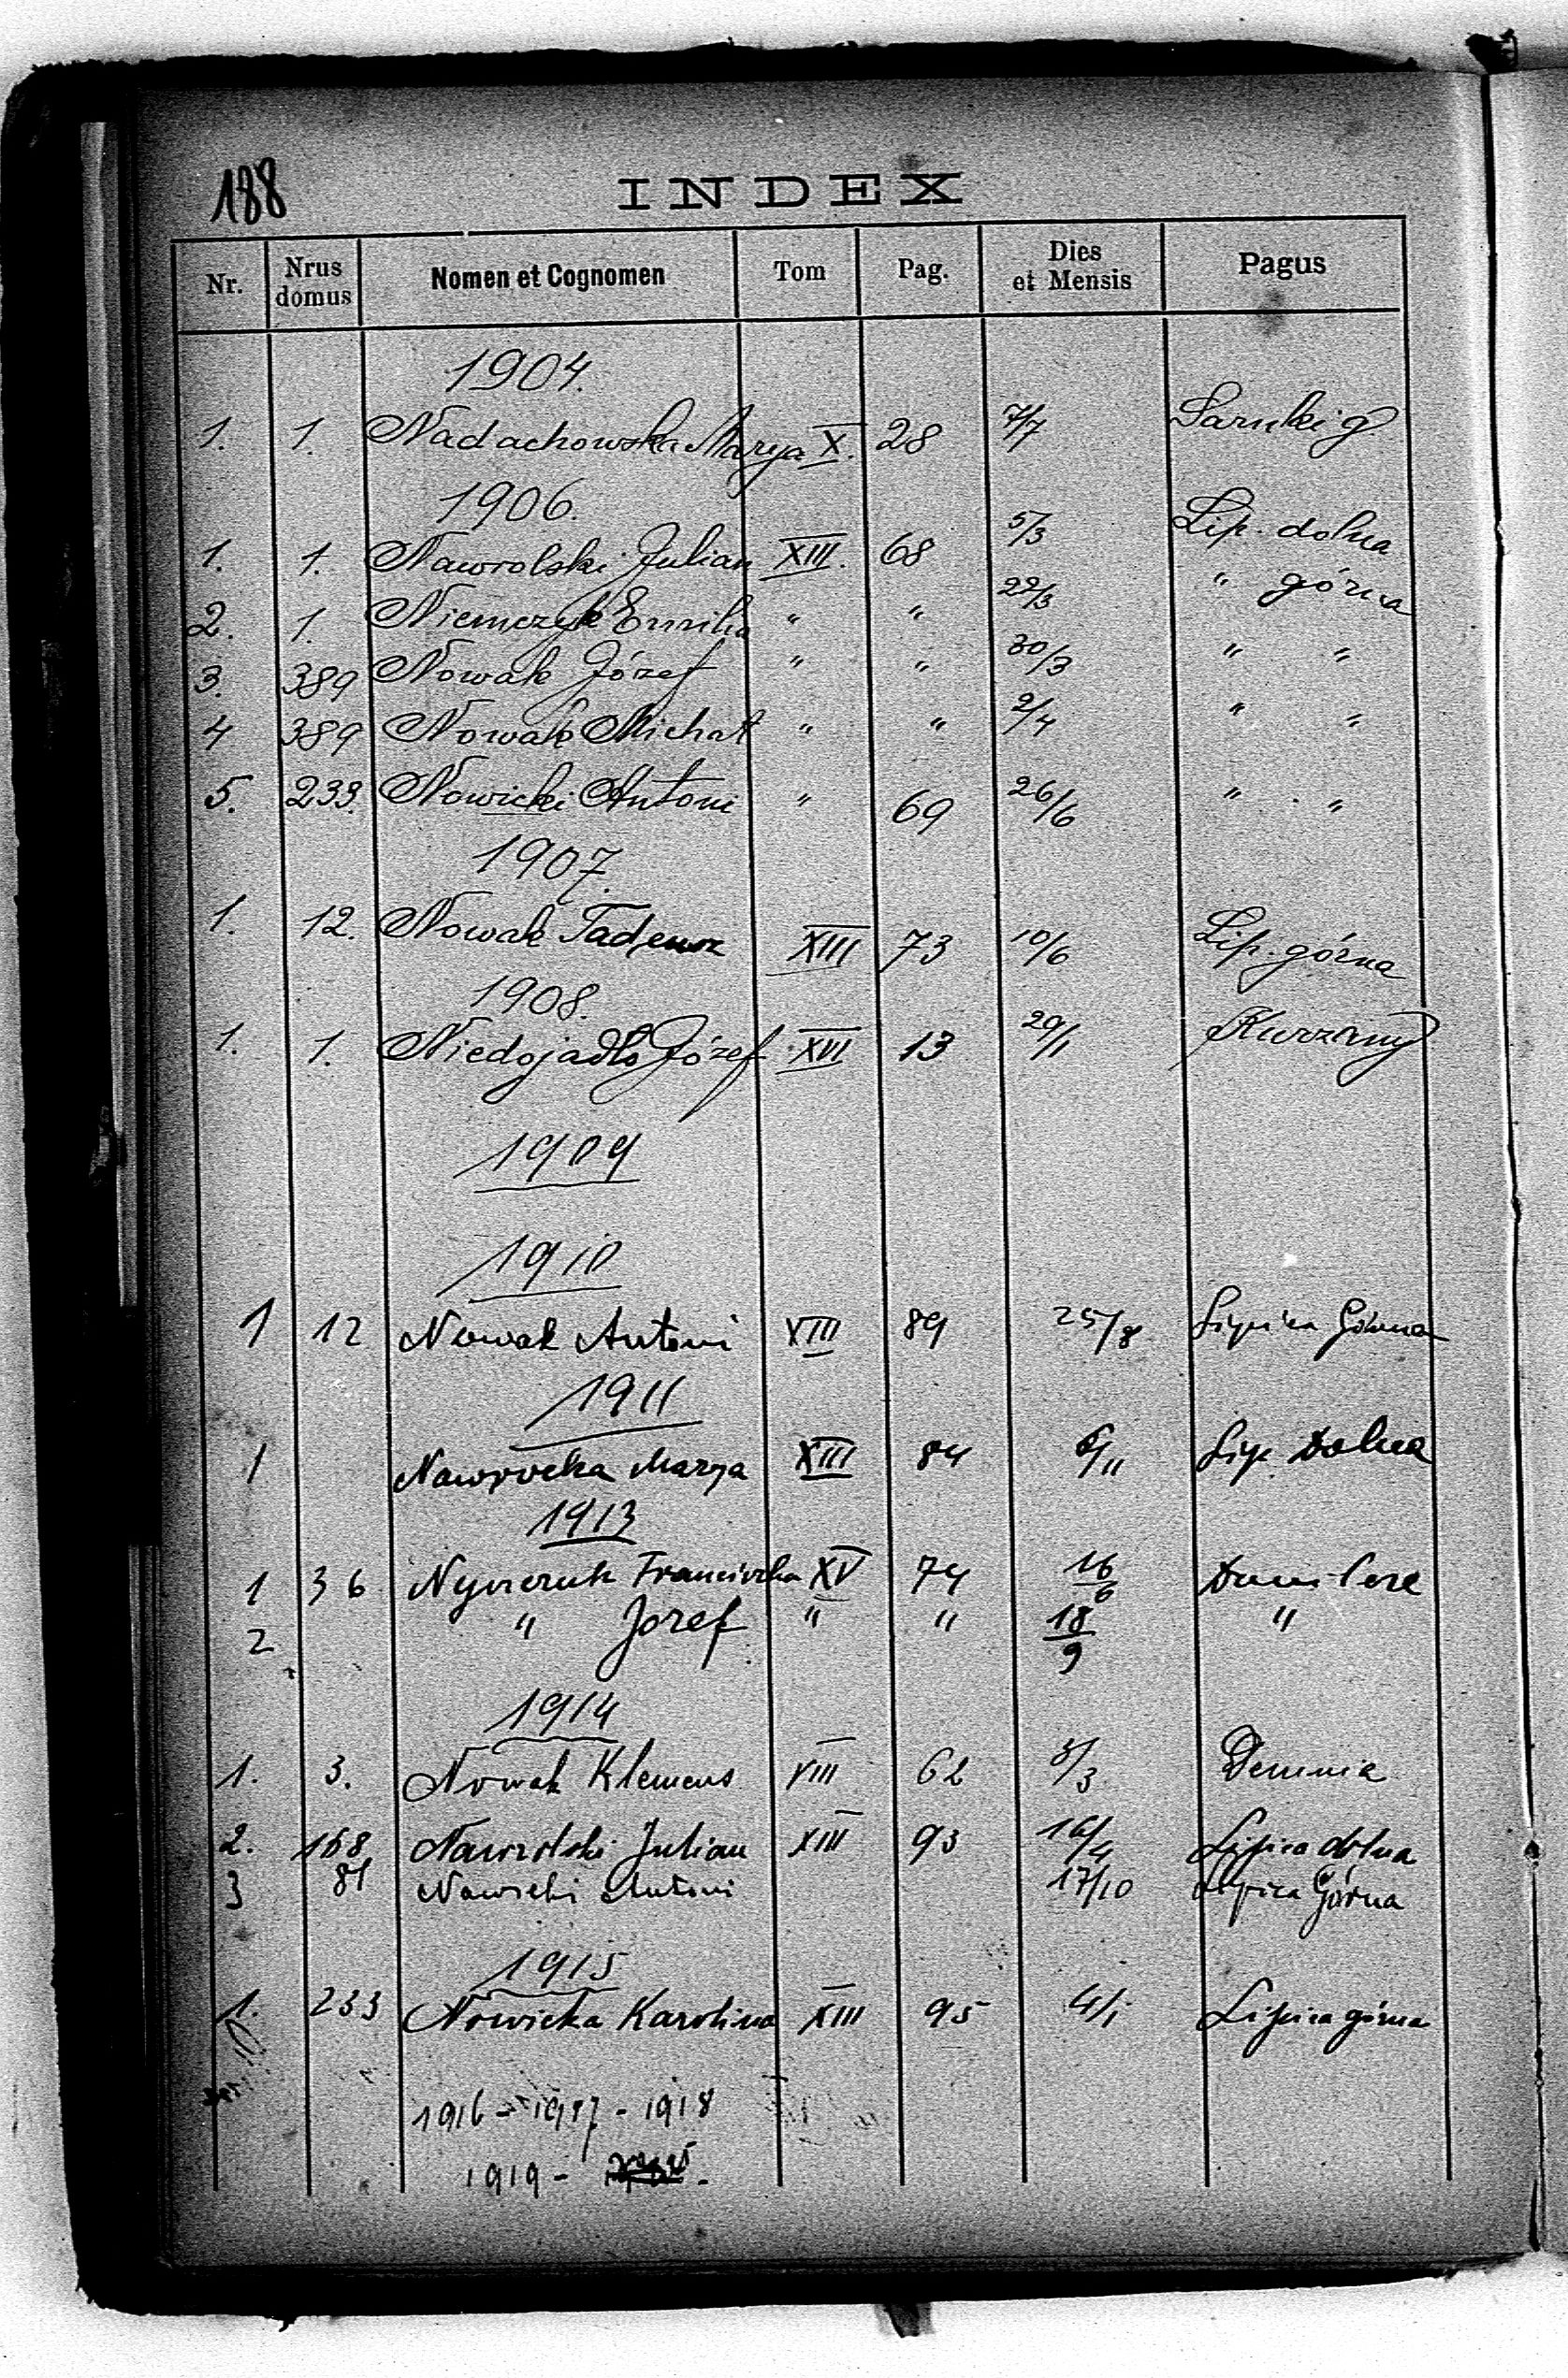 188
INDEX
Nr. Nrus domus Nomen et Cognomen Tom Pag. Dies et Mensis Pagus
1904.
1. 1. Nadachowska Marya X. 28 7/7 Sarnki g
1906.
1. 1. Nawrolski Julian XIII. 68 5/3 Lip. dolna
2. 1. Niemczyk Emilia " " 22/3 " górna
3. 389 Nowak Józef " " 30/3 " "
4 389 Nowak Michał " " 2/4 " "
5. 233. Nowicki Antoni " 69 26/6 " "
1907.
1. 12. Nowak Tadeusz XIII 73 10/6 Lip. górna
1908.
1. 1. Niedojadło Józef XVI 13 29/1 Kurzany
1909
1910
1 12 Nowak Antoni XIII 89 25/8 Lipica Górna
1911
1 Nawrocka Marya XIII 84 6/11 Lip. Dolna
1913
1 36 Franciszka XV 74 16/6
2 " Jozef " " 18/9 "
1914
1. 3. Nowak Klemens VIII 62 5/3 Demnia
2. 168 Nawrolski Julian XIII 93 16/4 Lipica dolna
3 81 Nowicki Antoni 17/10 Lipica Górna
1915
1. 233 Nowicka Karolina XIII 95 4/1 Lipica górna
1916 - 1917 - 1918
1919 -